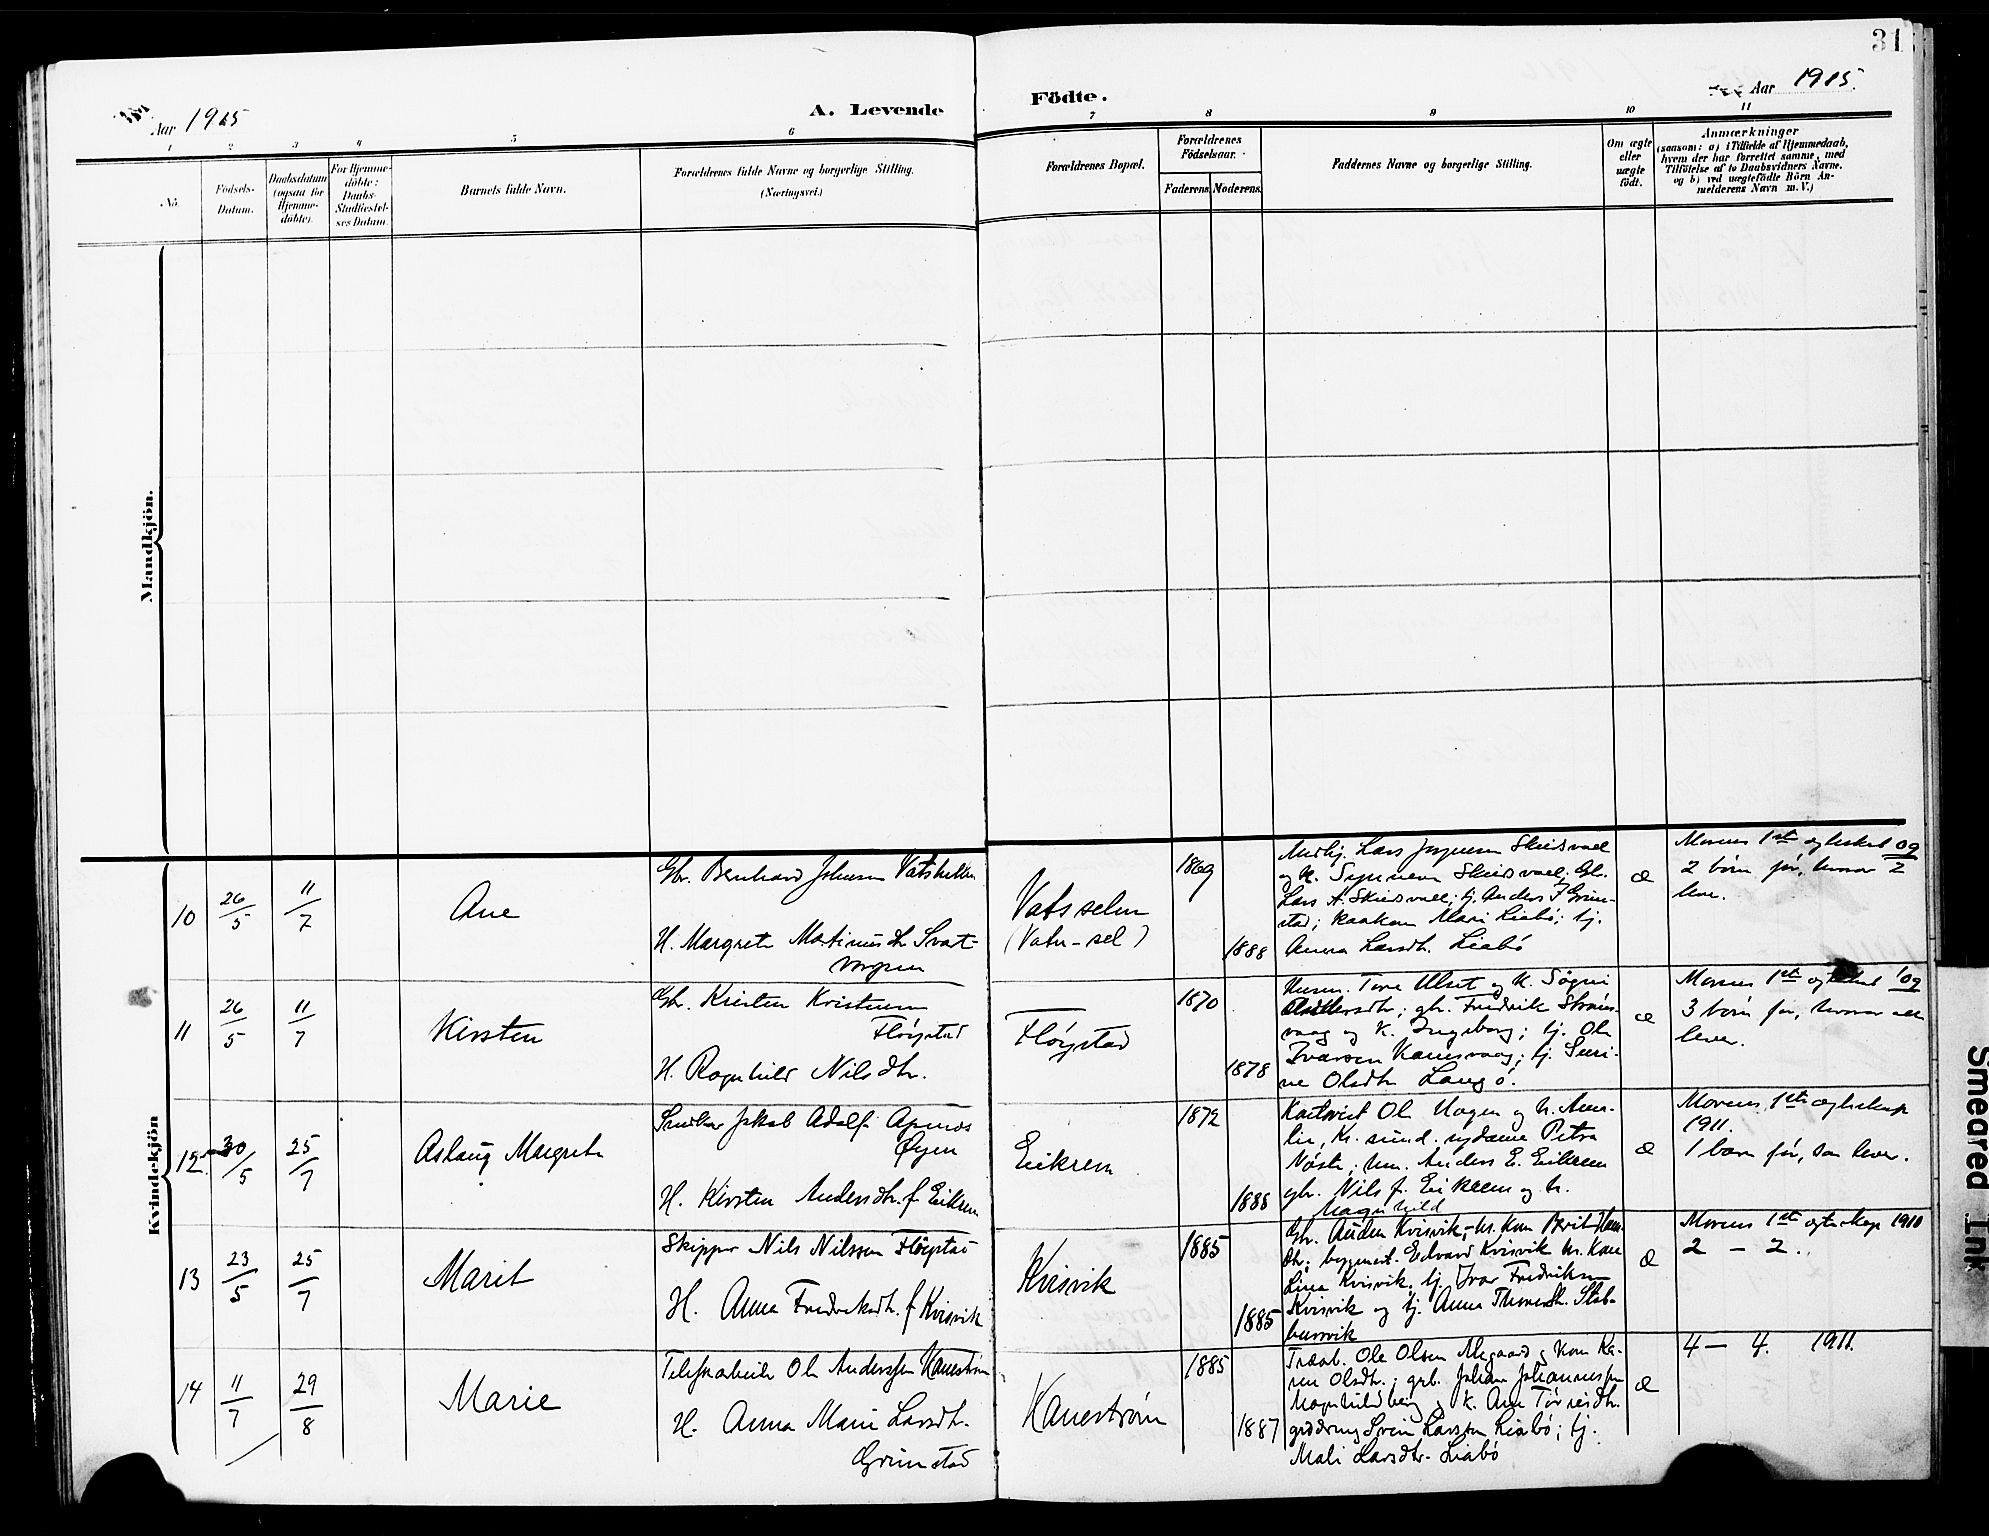 31
Aar 1915
A. Levende
Födte.
Aar 1915.
1 2 3 4 5 6 7 8 9 10 11
No.
Födsels-Datum.
Daabsdatum (ogsaa for Hjemme-döbte).
For Hjemme-döbte: Daabs-Stadfæstel-ses Datum.
Barnets fulde Navn.
Forældrenes fulde Navne og borgerlige Stilling.
(Næringsvei.)
Forældrenes Bopæl.
Forældrenes Födselsaar.
Faderens. Moderens.
Faddernes Navne og borgerlige Stilling.
Om ægte eller uægte födt.
Anmærkninger
(saasom: a) i Tilfælde af Hjemmedaab,
hvem der har forrettet samme, med
Tilföielse af to Daabsvidners Navne.
og b) ved uægtefödte Börn An-
melderens Navn m. V.)
Mandkjön.
Kvindekjön
10
26/5
11/7
Ane
Gbr. Bernhard Johnsen Vatshellen
H. Margrete Martinusdtr Svart-
vagen
Vatsselen
(Vatn-sel)
1869
1888
Lars Skeisvoll
og K. Synneva Skeisvoll; Gbr.
Lars A. Skeisvoll; tj. Anders J Grim-
stad; Mari Liabö; tj.
Anna Larsdtr. Liabö
æ
Morens 1ste egteskab 09
2 börn før, hvorav 2
lever.
11
26/5
11/7
Kirsten
Gbr. Kristen Kristensen
Fløystad
H. Ragnhild Nilsdtr.
Fløystad
1870
1878
Tore Ulset og K. Søgni
Andersdtr; gbr. Fredrik Strøms-
vaag og K. Ingeborg; tj. Ole
Ivarsen Kanesvaag; tj. Seri-
ne Olsdtr Langö.
æ
Morens 1ste egteskab '09
3 børn før, hvorav alle
lever.
12.
30/5
25/7
Aslaug Margrete
Snedker Jakob Adolf
Øyen
H. Kirsten Andersdtr. f. Eikrem
Eikrem
1872
1888
Ole Hagen og h. Ama-
lie, Kr.sund. sydame Petra
Nøste; um. Anders E. Eikrem
gbr. Nils J. Eikrem og h.
Magnhild
æ
Morens 1ste egteskap
1911.
1 barn før, som lever.
13
23/5
25/7
Marit
Skipper Nils Nilssen Fløystad
H. Anna Fredriksdtr. f Kvisvik
Kvisvik
1885
1885
Gbr. Auden Kvisvik, hs. kone Berit Han-
dtr; bygmest. Edvard Kvisvik hs. Kone
Lina Kvisvik, tj. Ivar Fredriksen
Kvisvik og tj. Anna Thoresdtr. Stab-
bursvik
æ
Morens 1ste egteskap 1910
2 — 2.
14
11/7
29/8
Marie
Ole Anderssen Kanestrøm
H. Anna Marie Larsdtr.
Grimstad
Kanestrøm
1885
1887
Ole Olsen Megaard og kone Ka-
ren Olsdtr.; grb. Johan Johannessen
Magnhildberg og K. Ane
Svein Larssen Liabö; tj.
Mali Larsdtr. Liabö
æ
4 — 4. 1911.
Smeared Ink